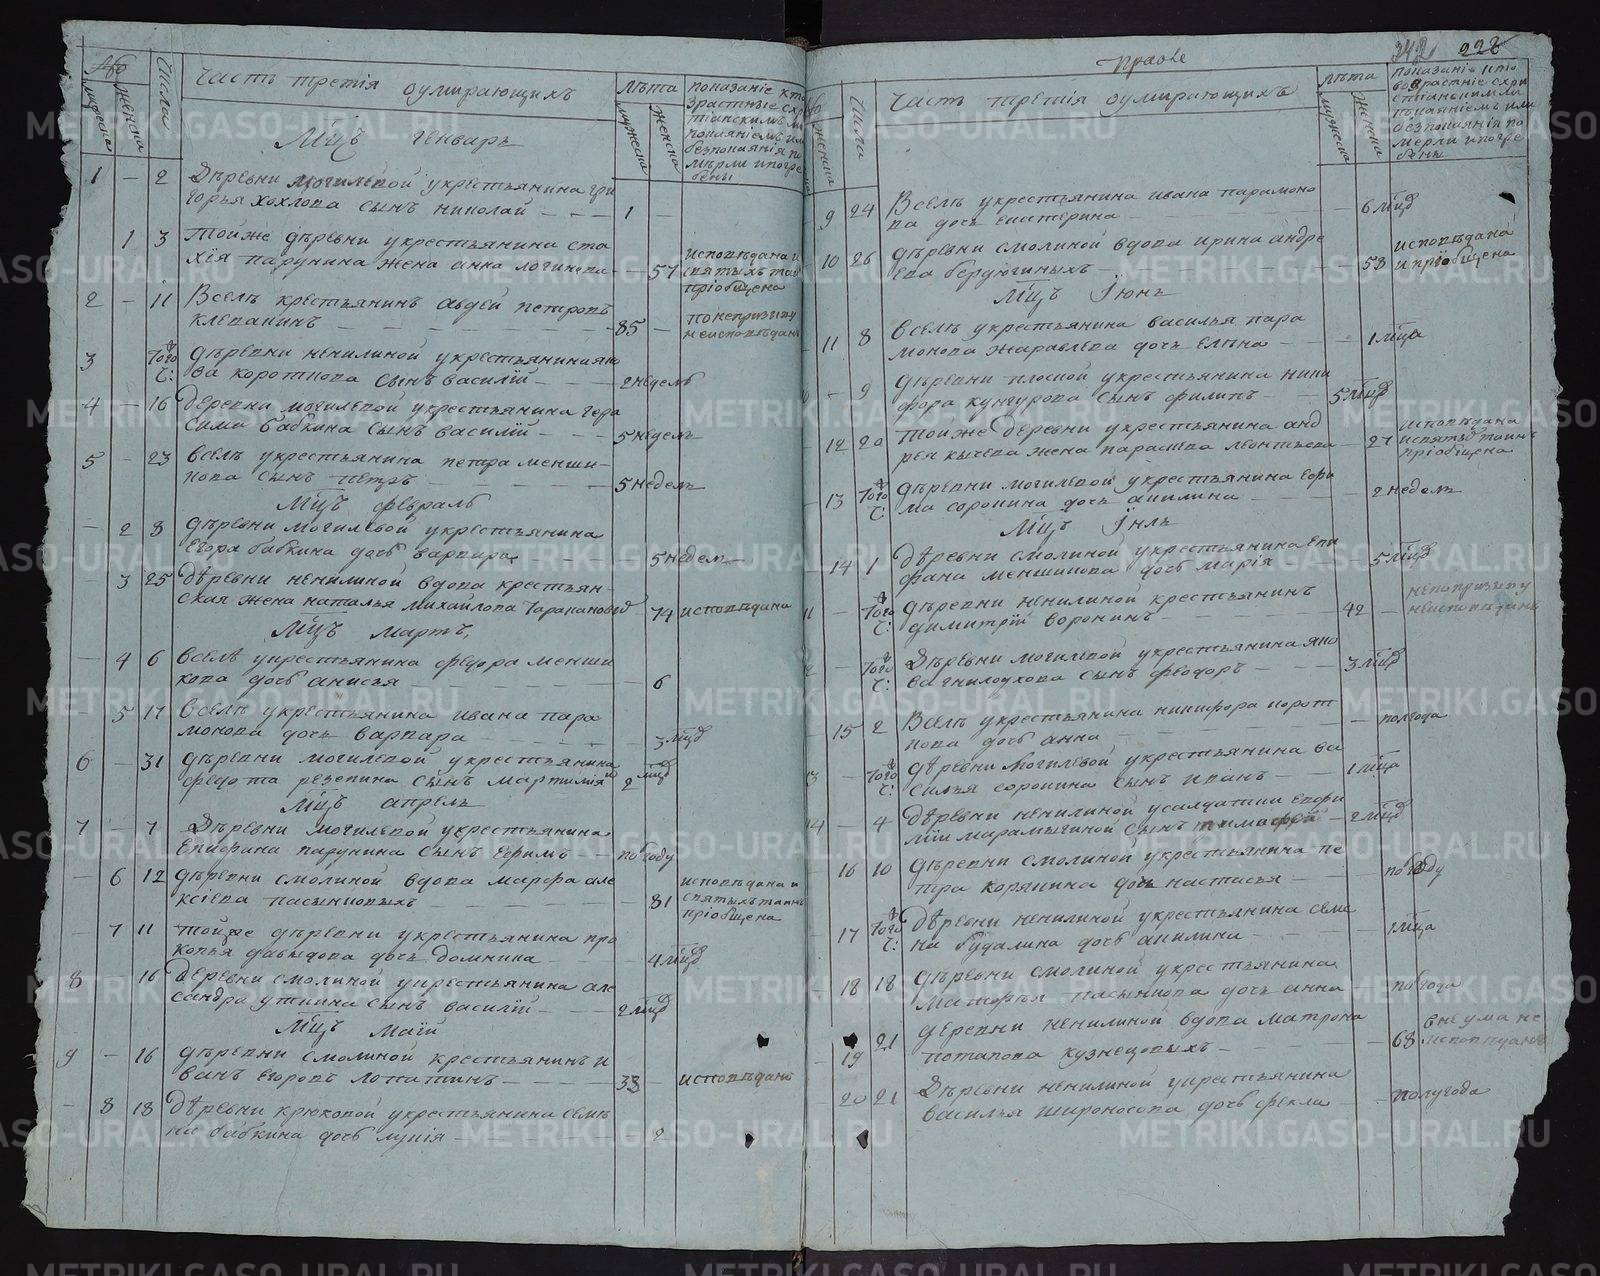 №
мужеска
женска
Числа
Часть третія оумирающихъ
лѣта
мужеска
женска
показаніе кто
Мцъ Генварь
1 — 2 Дѣревни Могилевой укрестьянина гри
горья хохлова сынъ николай — — — 1 —
1 3 Тойже дѣревни укрестьянина
парунина жена анна логинова — 57 исповѣдана и
святыхъ таи
пріобщена
2 — 11 Вселѣ крестьянинъ авдей петровъ
клепанинъ — — — 85 — понепризыву
неисповѣданъ
3 Того ч: дѣревни ненилиной укрестьянина яко
ва короткова сынъ василій — — 2 недель
4 — 16 деревни могилевой укрестьянина гера
сима бабкина сынъ василій — — — 5 недель
5 — 23 вселѣ укрестьянина петра менши-
кова сынъ петръ — — — 5 недель
Мцъ февраль
— 2 8 дѣревни могилевой укрестьянина
егора бабкина дочь варвара — — 5 недель
3 25 дѣревни ненилиной вдова крестьян-
ская жена наталья михайлова 74 исповѣдана
Мцъ мартъ,
— 4 6 вселѣ укрестьянина федора менши
кова дочь анисья — — — 6
5 17 вселѣ укрестьянина ивана пара
монова дочь варвара — — — 3 мцд
6 — 31 дѣревни могилевой укрестьянина
федота резепина сынъ 2 мцд
Мцъ апрель
7 — 7 Дѣревни могилевой укрестьянина
епифана парунина сынъ ефимъ — погоду
— 6 12 дѣревни смолиной вдова марфа але
ксіева пасынковыхъ — — — 81 исповѣдана и
святыхъ таинъ
пріобщена
— 7 11 тойже дѣревни укрестьянина про
копья давыдова дочь домника — — 4 мцд
8 16 Деревни смолиной укрестьянина але
сандра уткина сынъ василій — — 2 мцд
Мцъ маій
9 — 16 дѣревни смолиной крестьянинъ и
ванъ егоровъ лопатинъ — — — 33 — исповѣданъ
— 8 18 дѣревни крюковой укрестьянина семѣ
на бабкина дочь лукія — — — 2
342 228
Числа
Часть третія оумирающихъ
лѣта
мужеска
женска
показаніе кто
9 24 Вселѣ укрестьянина ивана парамоно
ва дочь екатерина — — — 6 мцд
10 26 дѣревни смолиной вдова ирина андре
ева бердюгиныхъ — — 58 исповѣдана
и пріобщена
Мцъ Іюнь
11 8 вселѣ укрестьянина василья пара
монова жаравлева дочь елена — — 1 мца
— 9 дѣревни плоской укрестьянина ники
фора кунгурова сынъ филипъ — — 5 мцд
12 20 тойже деревни укрестьянина анд
рея кычева жена парасцева леонтьева — 27 исповѣдана
исвятыхъ таинъ
пріобщена
13 Того ч: дѣревни могилевой укрестьянина ефи
ма сорокина дочь акилина — — — 2 недель
Мцъ Іюль
14 1 дѣревни смолиной укрестьянина епи
фана меншикова дочь марія — 5 мцд
11 — Того ч: дѣревни ненилиной крестьянинъ
димитрій воронинъ — — 42 — непопризыву
неисповѣданъ
— Того ч: Дѣревни могилевой укрестьянина яко
ва гнилоухова сынъ феодоръ — — 3 мцд
15 2 Вселѣ укрестьянина никифора корот
кова дочь анна — — — полгода
13 — Того ч: дѣревни могилевой укрестьянина ва
силья сорокина сынъ иванъ — — 1 мца
14 — 4 дѣревни ненилиной усалдатки евфи
міи марамыгиной сынъ тимофей — 2 мцд
16 10 дѣревни смолиной укрестьянина пе
тра корякина дочь настасья — — погоду
17 Того ч: дѣревни ненилиной укрестьянина семе
на будалина дочь акилина — — — 1 мца
18 18 дѣревни смолиной укрестьянина
пасынкова дочь анна — — погода
19 21 деревни ненилиной вдова матрона
потапова кузнецовыхъ — — — 68 внеума не
исповѣдана
20 21 Дѣревни ненилиной укрестьянина
василья широносова дочь фекла — — полугода